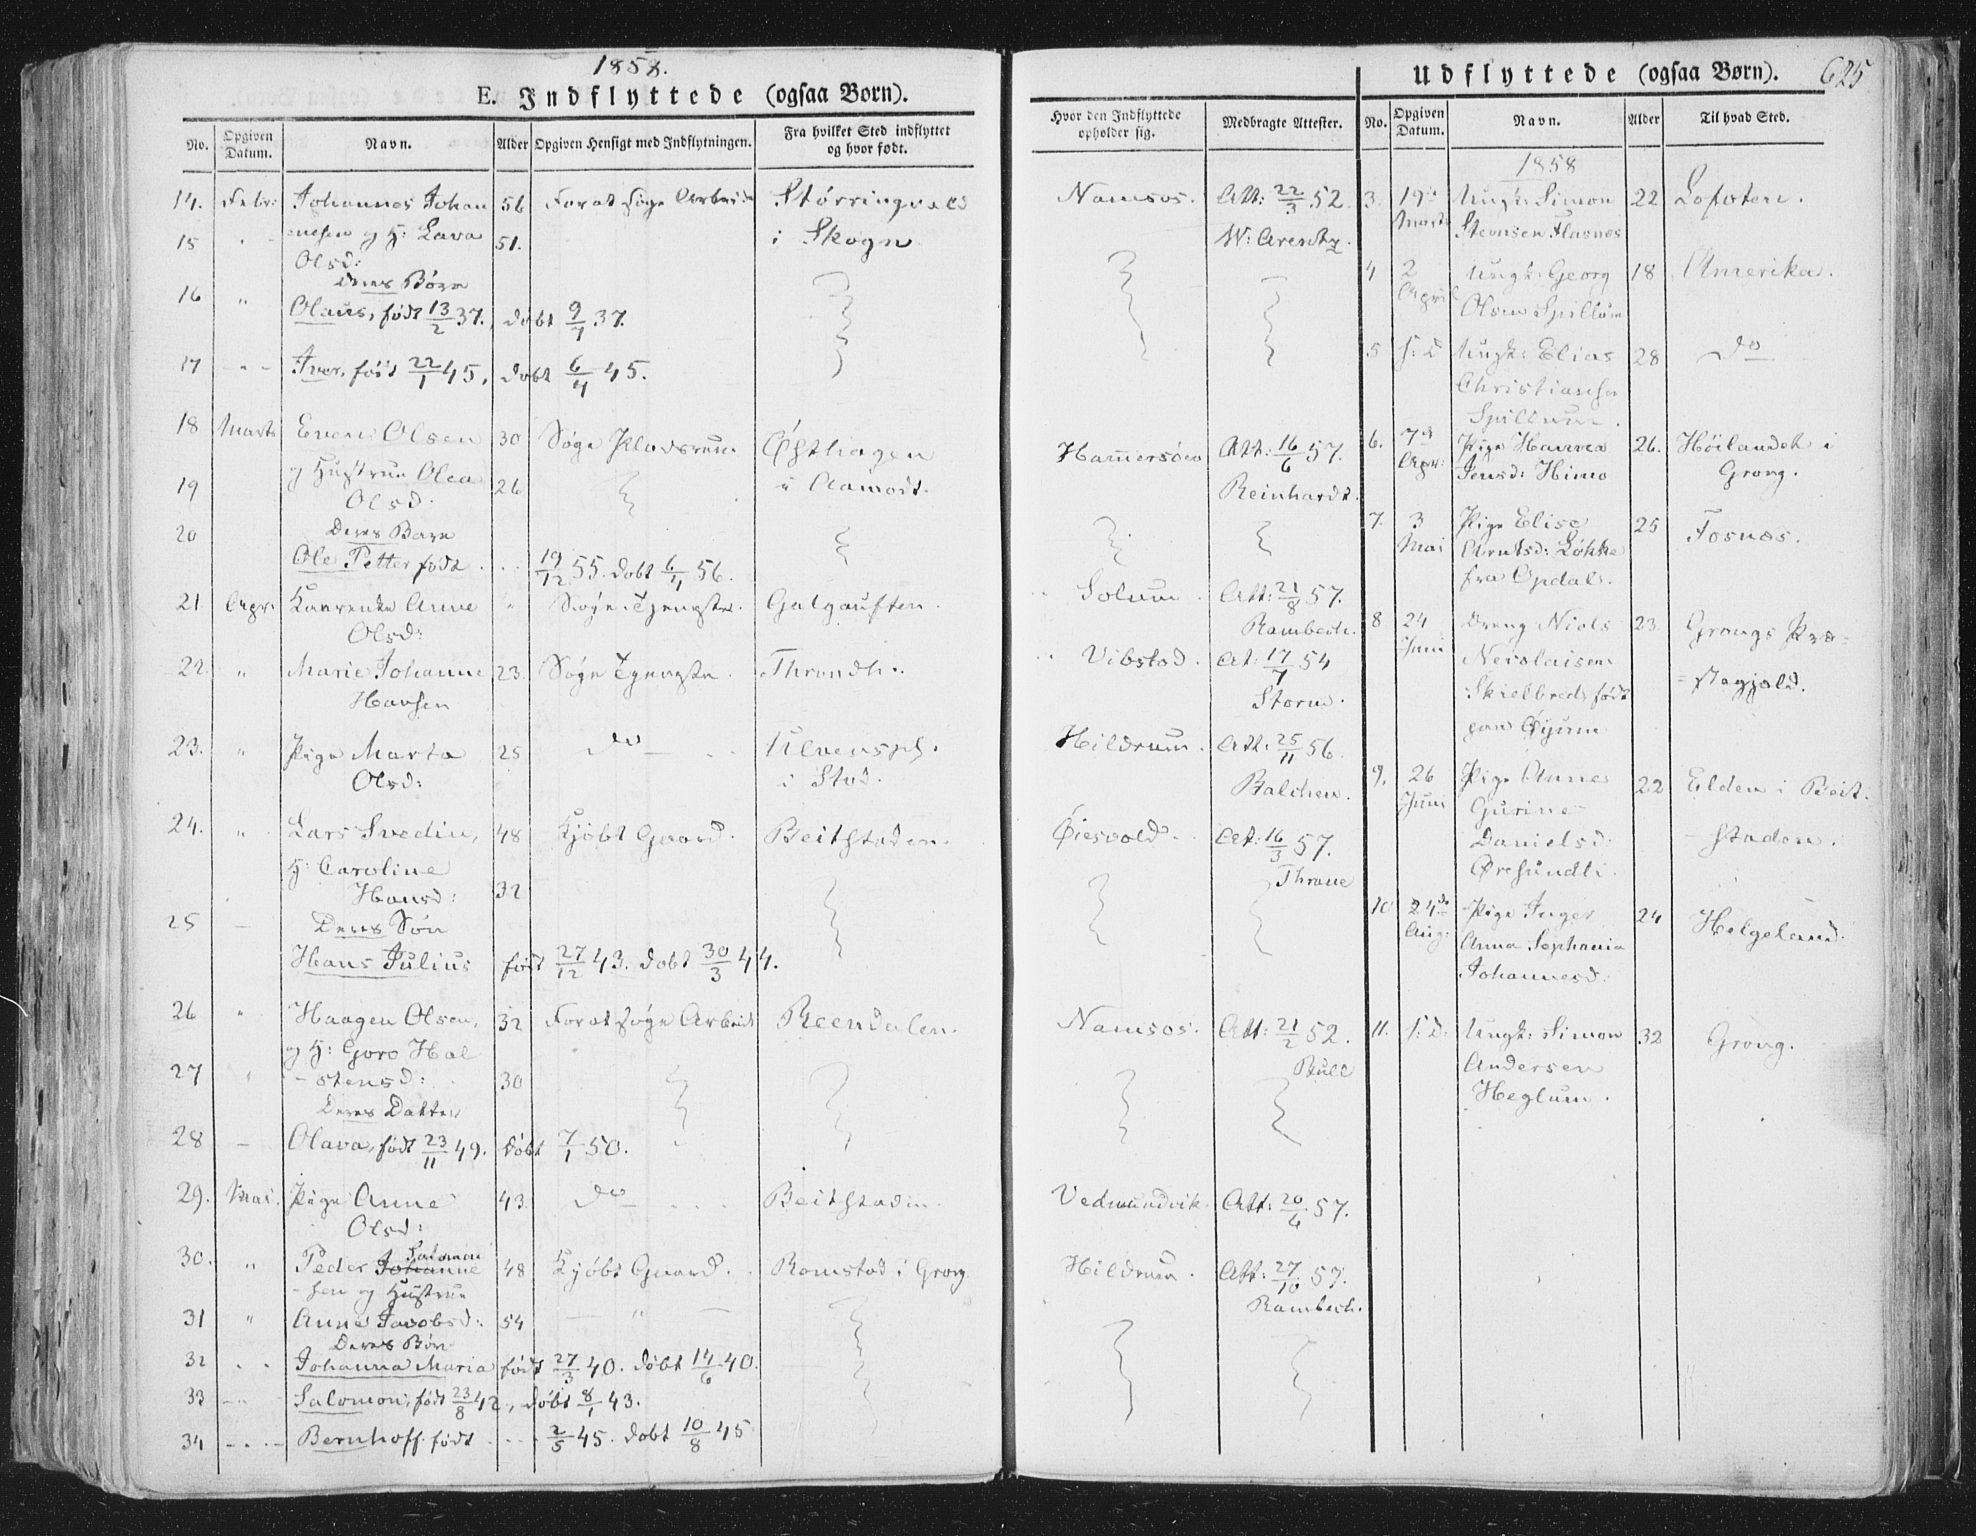 1858.
E. Indflyttede (ogsaa Børn).
No.
Opgiven Datum.
Navn.
Alder
Opgiven Hensigt med Indflytningen.
Fra hvilket Sted indflyttet og hvor født.
14. Febr: Johannes Johan 56 For at søge Arbeide Størringvald
15 " nesen og H: Lava 51. i Skogn
Olsd:
Deres Børn
16 " Olaus, født 13/2 37. døbt 9/4 37.
17 " - Iver, født 22/1 45, døbt 6/4 45.
18 Marts Even Olsen 30 Søge Pladsrum Østhagen
19 og Hustrue Olea 26 i Aamodt.
Olsd:
20 Deres Barn
Ole Petter født . . . 19/12 55. døbt 6/4 56.
21 Apr. Karenke Anne " Søge Tjeneste. Galgauften.
Olsd:
22. " Marie Johanne 23. Søge Tjeneste. Throndh.
Hansen
23. " Pige Marta 25 do Ulvenspl.
Olsd: i Stod.
24. " Lars Svedin, 48 Kjøbt Gaard. Beitstaden.
H: Caroline
Hansd: 32
25 — Deres Søn
Hans Julius født 27/12 43. døbt 30/3 44.
26 " Haagen Olsen, 32 For at søge Arbeide Reendalen.
og H: Goro Hal
27 " -stensd: 30
Deres Datter
28 — Olava, født 23/11 49. døbt 7/1 50.
29. Mai. Pige Anne 43. do Beitstaden.
Olsd:
30. " Peder Johanne 48 Kjøbt Gaard. Romstad i Grong
Salomon
-sen og Hustrue
31 " Anne Jacobsd: 54 — " —
Deres Børn
32 . . Johanna Maria født 27/3 40. døbt 14/6 40.
33 - - Salomon, født 23/8 42, døbt 8/1 43.
34 - . . - Bernhoff født . . . 2/5 45. døbt 10/8 45
Hvor den Indflyttede opholder sig.
Medbragte Attester.
Namsos. Att: 22/3 52.
W: Areschz.
Hammersøen Att: 16/6 57.
Reinhardt.
Solum. Att: 21/8 57.
Rambech.
Vibstad. At: 17/7 54
Storm.
Hildrum. Att: 25/11 56.
Balchen.
Øiesvold. At: 16/3 57.
Thrane
Namsos. Att: 21/2 52.
Bull
Vedmundvik. Att: 20/6 57.
Hildrum. Att: 27/10 57.
Rambech.
Udflyttede (ogsaa Børn). 625
No.
Opgiven Datum.
Navn.
Alder
Til hvad Sted.
1858
3. 19de Ungk: Simon 22 Lofoten.
Marts Stevnsen Flasnes
4 2 Ungk: Georg 18 Amerika.
April Olsen Spillum
5 s: D Ungk: Elias 28 do
Christiansen
Spillum.
6. 7de Pige Hanna 26. Høilandet i
Apr: Jensd: Himo Grong.
7. 3 Pige Elise 25 Fosnæs.
Mai Arntsd: Løkke
fra Opdal.
8 24 Dreng Niels 23. Grongs Præ-
Juni Nicolaisen =stegjeld.
Skielbred født
paa Øyum
9. 26 Pige Anne 22 Elden i Beit-
Juni Gurine
Danielsd: -staden.
Øresundli.
10 24de Pige Inger 24 Helgeland.
Aug: Anna Sephania
Johannesd:
11. s: D: Ungk: Simon 32 Grong.
Andersen
Heglum.